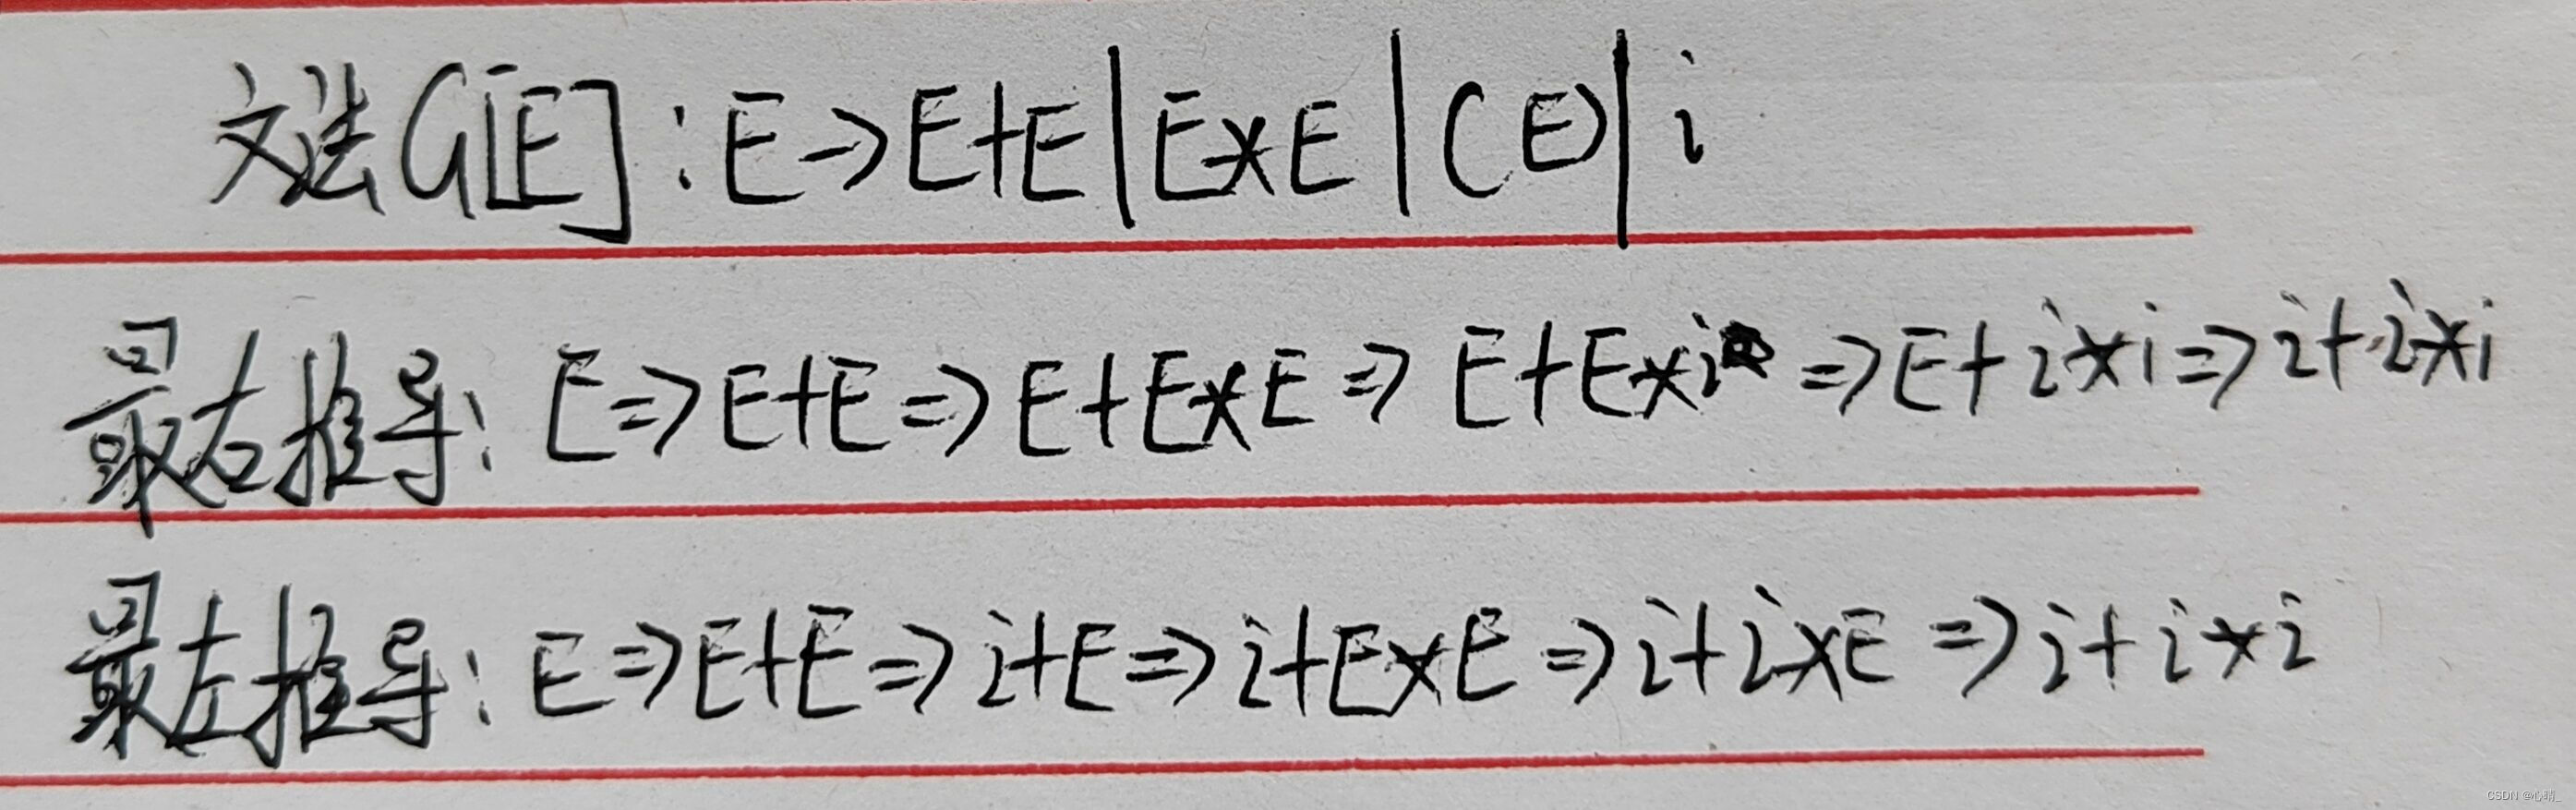 文法G[E]:E->E+E|E*E|(E)|i
最右推导: E=>E+E=>E+E*E=>E+E*i=>E+i*i=>i+i*i
最左推导: E=>E+E=>i+E=>i+E*E=>i+i*E=>i+i*i
CSDN @心晴_